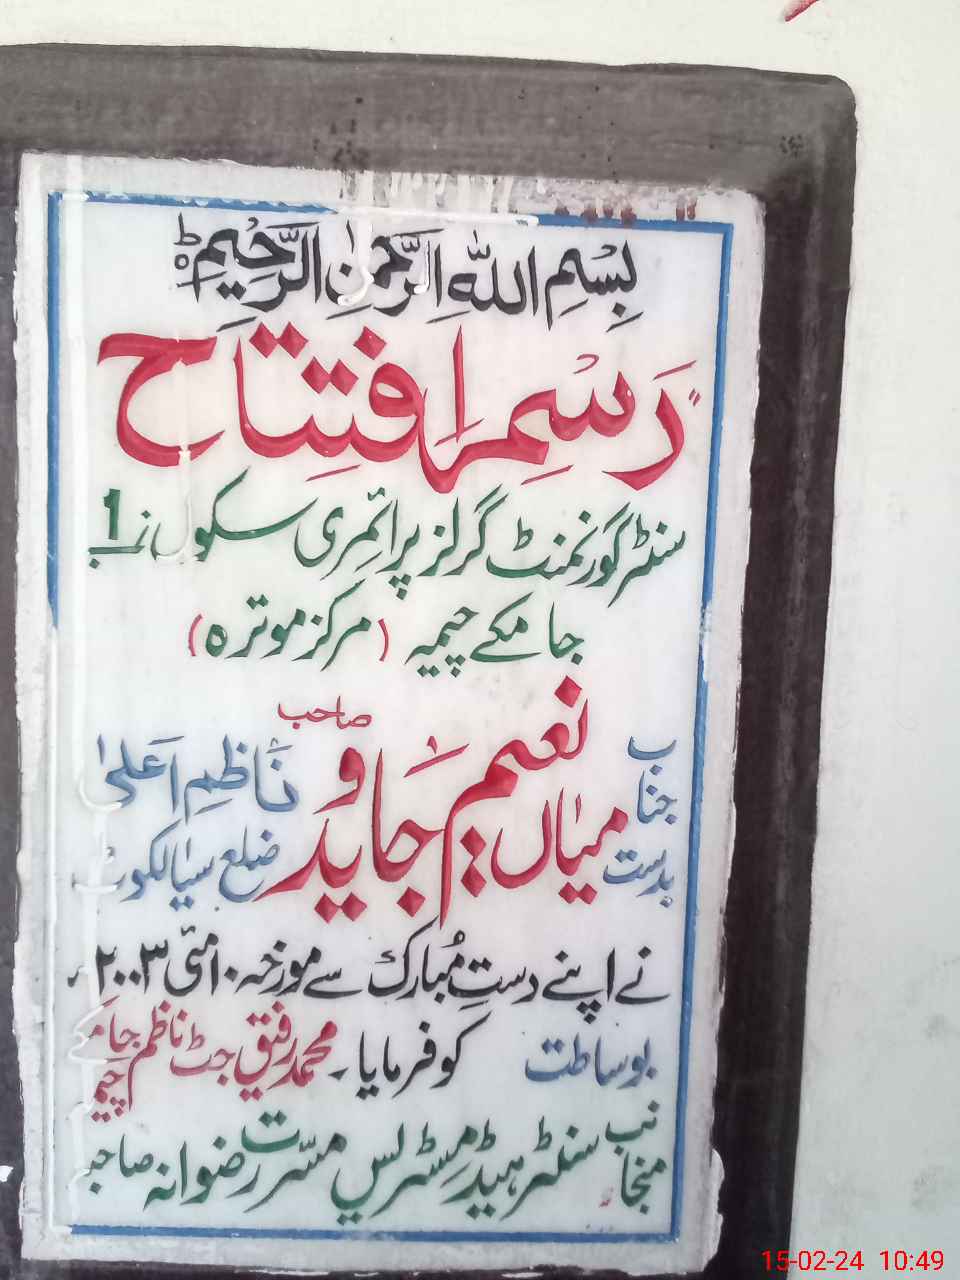 بِسْمِ اللّٰهِ الرَّحْمٰنِ الرَّحِيْمِ ط
رَسمِ اِفتِتاح
سنٹر گورنمنٹ گرلز پرائمری سکول نمبر 1
جامکے چیمہ (مرکز موترہ)
جناب میاں نعیم جاوید صاحب ناظمِ اَعلیٰ
بدست ضلع سیالکوٹ
نے اپنے دستِ مُبارک سے مورخہ ۱۰ مئی ۲۰۰۳ء
کو فرمایا۔ بوساطت محمد رفیق جٹ ناظم جامکے چیمہ
منجانب سنٹر ہیڈ مِسٹرلیس مسّرت رضوانہ صاحبہ
15-02-24 10:49